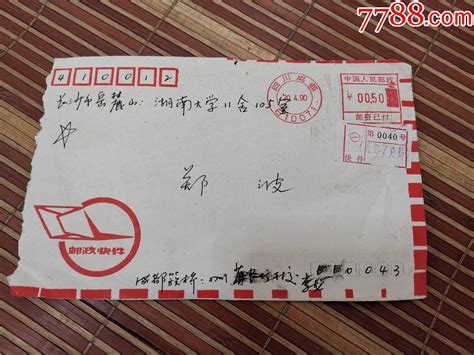 7788.com
410012
长沙市岳麓山:湖南大学11舍105室
四川成都
.4.90
610071
中国人民邮政
¥00.50
邮资已付
第0040号
快件
郑波
邮政快件
成都
043